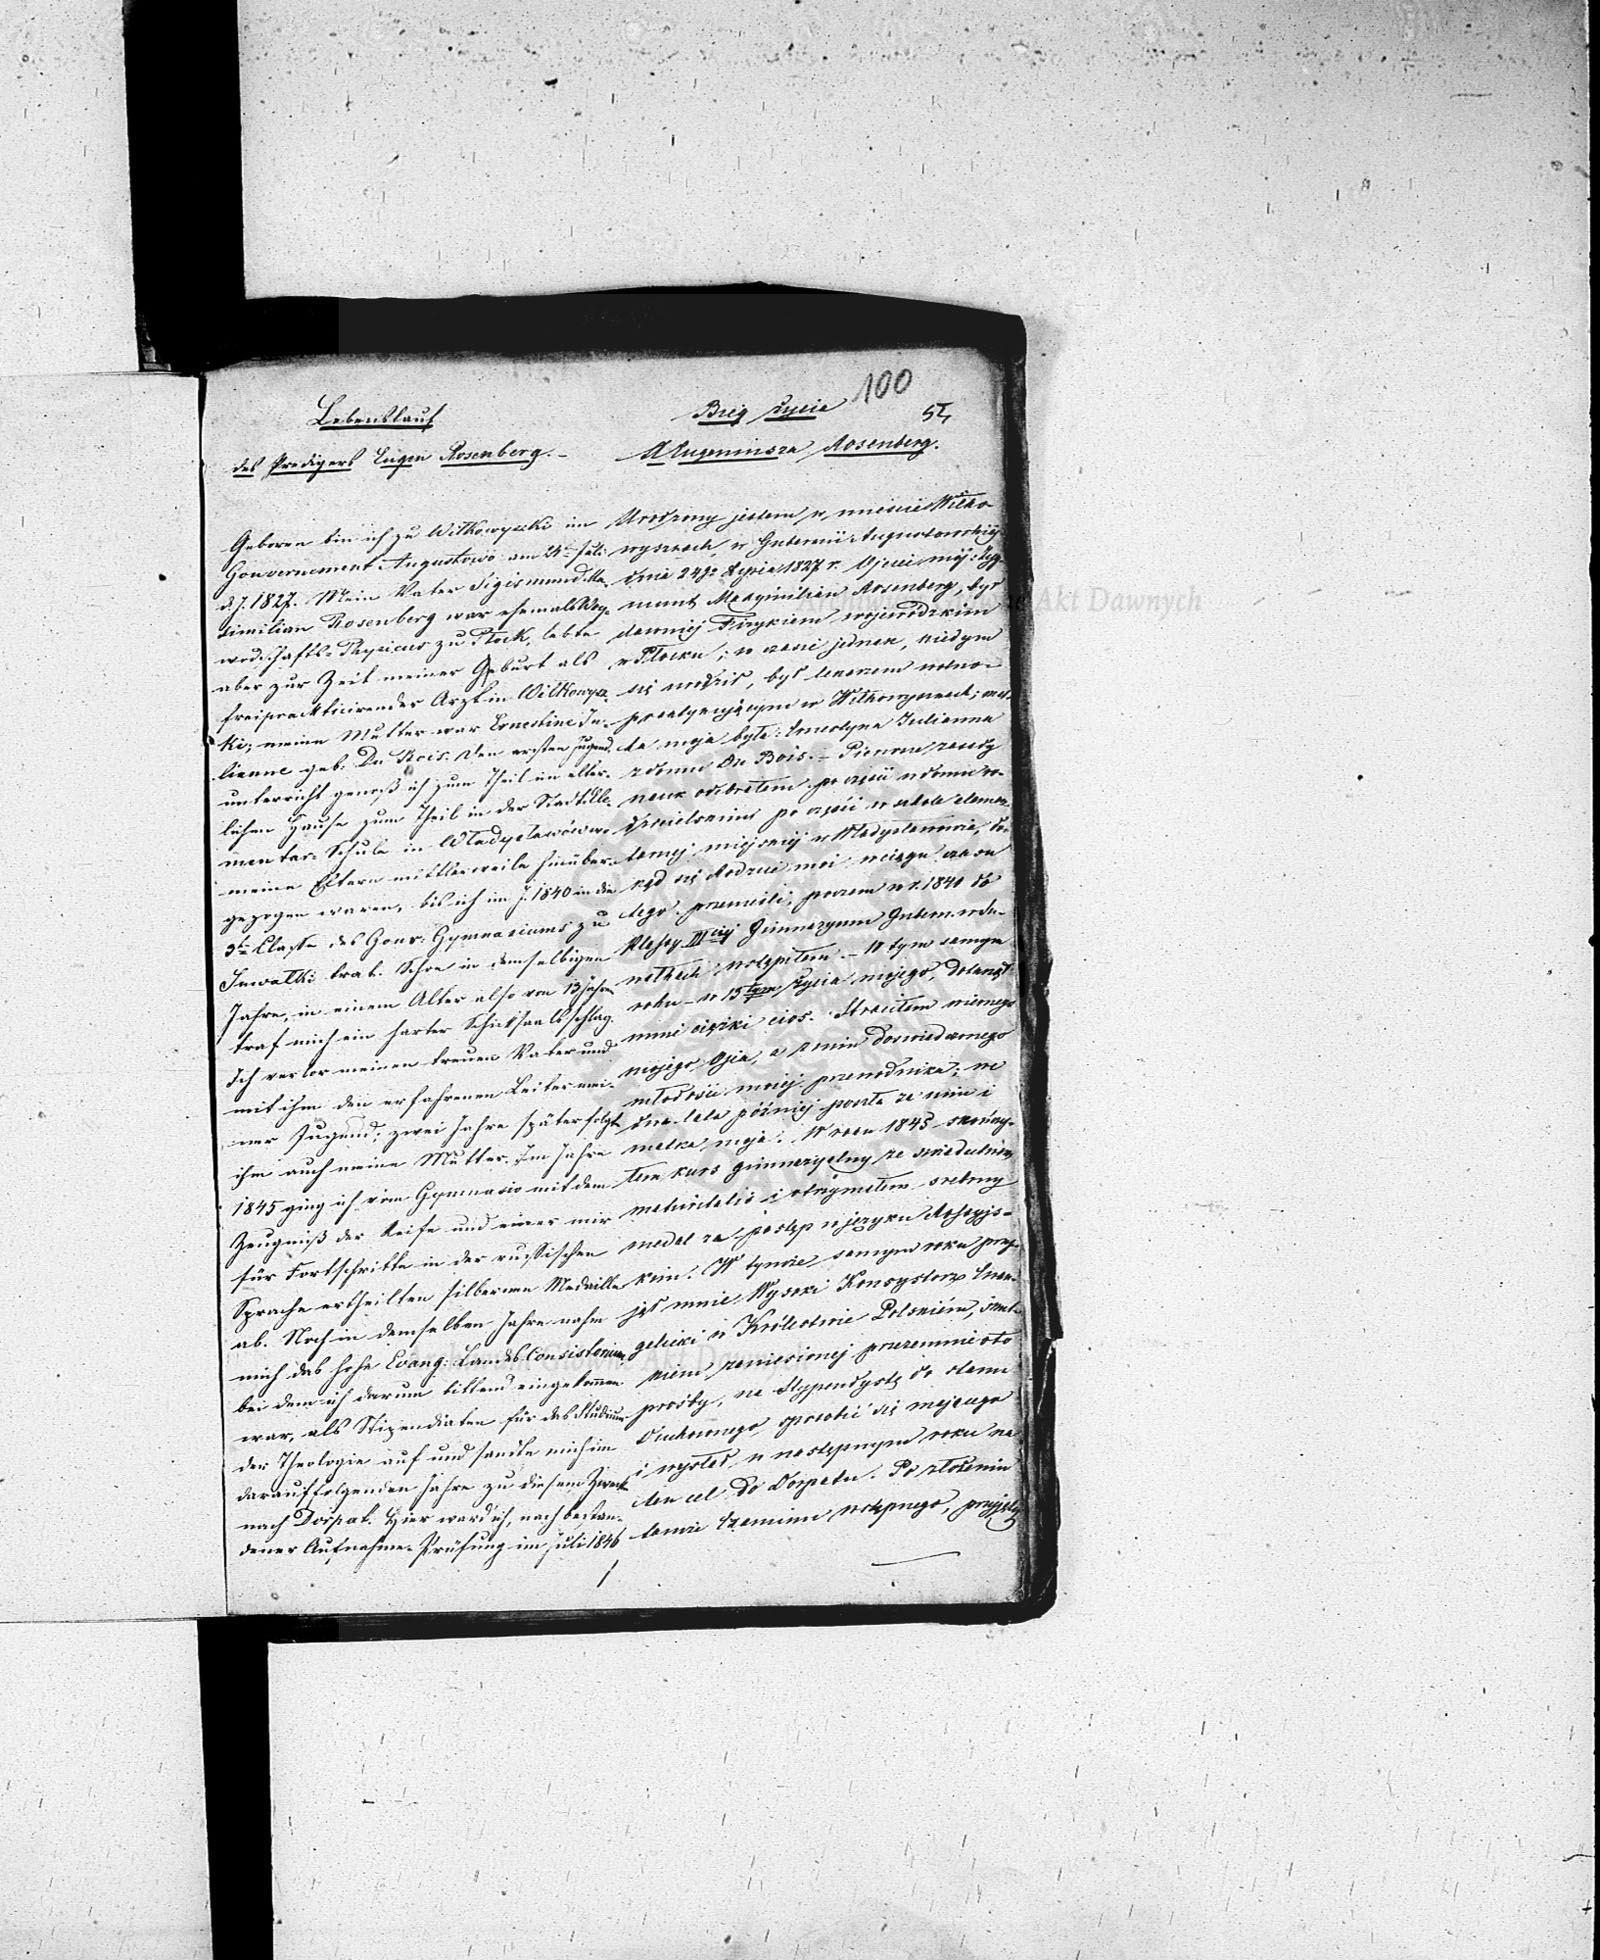 100
54
Lebenslauf
des Predigers Eugen Rosenberg.-
Geboren bin ich zu Wilkowyszki im
Gouvernement Augustowo am 24. Juli
d. J. 1827. Mein Vater Sigismund Ma-
ximilian Rosenberg war ehemals Woy-
wodschafts-Physicus zu Płock, lebte
aber zur Zeit meiner Geburt als
freipracticirender Arzt in Wilkowysz-
ki; meine Mutter war Ernestine Ju-
lianne geb. Du Bois. Den ersten Jugend-
unterricht genoß ich zum Theil im elter-
lichen Hause zum Theil in der Stadt-Ele-
mentar-Schule in Władysławów, wo
meine Eltern mittlerweile hinüber-
gezogen waren, bis ich im J. 1840 in die
3te Classe des Gouv. Gymnasiums zu
Suwałki trat. Schon in demselbigen
Jahre, in einem Alter also von 13 Jahren
traf mich ein harter Schicksalsschlag.
Ich verlor meinen treuen Vater und
mit ihm den erfahrenen Leiter mei-
ner Jugend; zwei Jahre später folgt
ihm auch meine Mutter. Im Jahre
1845 ging ich vom Gymnasio mit dem
Zeugniß der Reife und einer mir
für Fortschritte in der russischen
Sprache ertheilten silbernen Medaille
ab. Noch in demselben Jahre nahm
mich das hohe Evang. Landes Consistorium,
bei dem ich darum bittend eingekommen
war, als Stipendiaten für das Studium
der Theologie auf und sandte mich im
darauffolgenden Jahre zu diesem Zweck
nach Dorpat. Hier ward ich, nach bestan-
dener Aufnahme-Prüfung im Juli 1846
Bieg życia
Eugeniusza Rosenberg.
Urodzony jestem w mieście Wiłko-
wyszkach, w Gubernii Augustowskiej
dnia 24go Lipca 1827 r. Ojciec mój: Zyg-
munt Maxymilian Rosenberg, był
dawniej Fizykiem wojewódzkim
w Płocku; w czasie jednak, kiedym
się urodził, był lekarzem wolno-
praktykującym w Wiłkowyszkach; mat-
ka moja była: Ernestyna Julianna
z domu Du Bois. - Pierwsze zasady
nauk odebrałem po części w domu ro-
dzicielskim po części w szkole elemen-
tarnej miejskiej w Władysławowie, do-
kąd się Rodzice moi w ciągu czasu
tego przenieśli, poczem w r. 1840 do
Klassy IIIciej Gimnazyum Gubern. w Su-
wałkach wstąpiłem. - W tym samym
roku - w 13tym życia mojego, dotknął
mnie ciężki cios. Straciłem wiernego
mojego Ojca, a z nim doświadczonego
młodości mojej przewodnika; we
dwa lata później poszła za nim i
matka moja. W roku 1845 skończy-
łem kurs gimnazyalny ze świadectwem
maturitatis i otrzymałem srebrny
medal za postęp w języku Rossyjs-
kim. W tymże samym roku przy-
jął mnie Wysoki Konsystorz Ewan-
gelicki w Królestwie Polskiém, skut-
kiem zaniesionej przezemnie oto
prośby, na Stypendystę do stanu
Duchownego sposobić się mającego
i wysłał w następnym roku na
ten cel do Dorpatu. Po złożeniu
tamże Examinu wstępnego, przyjęty